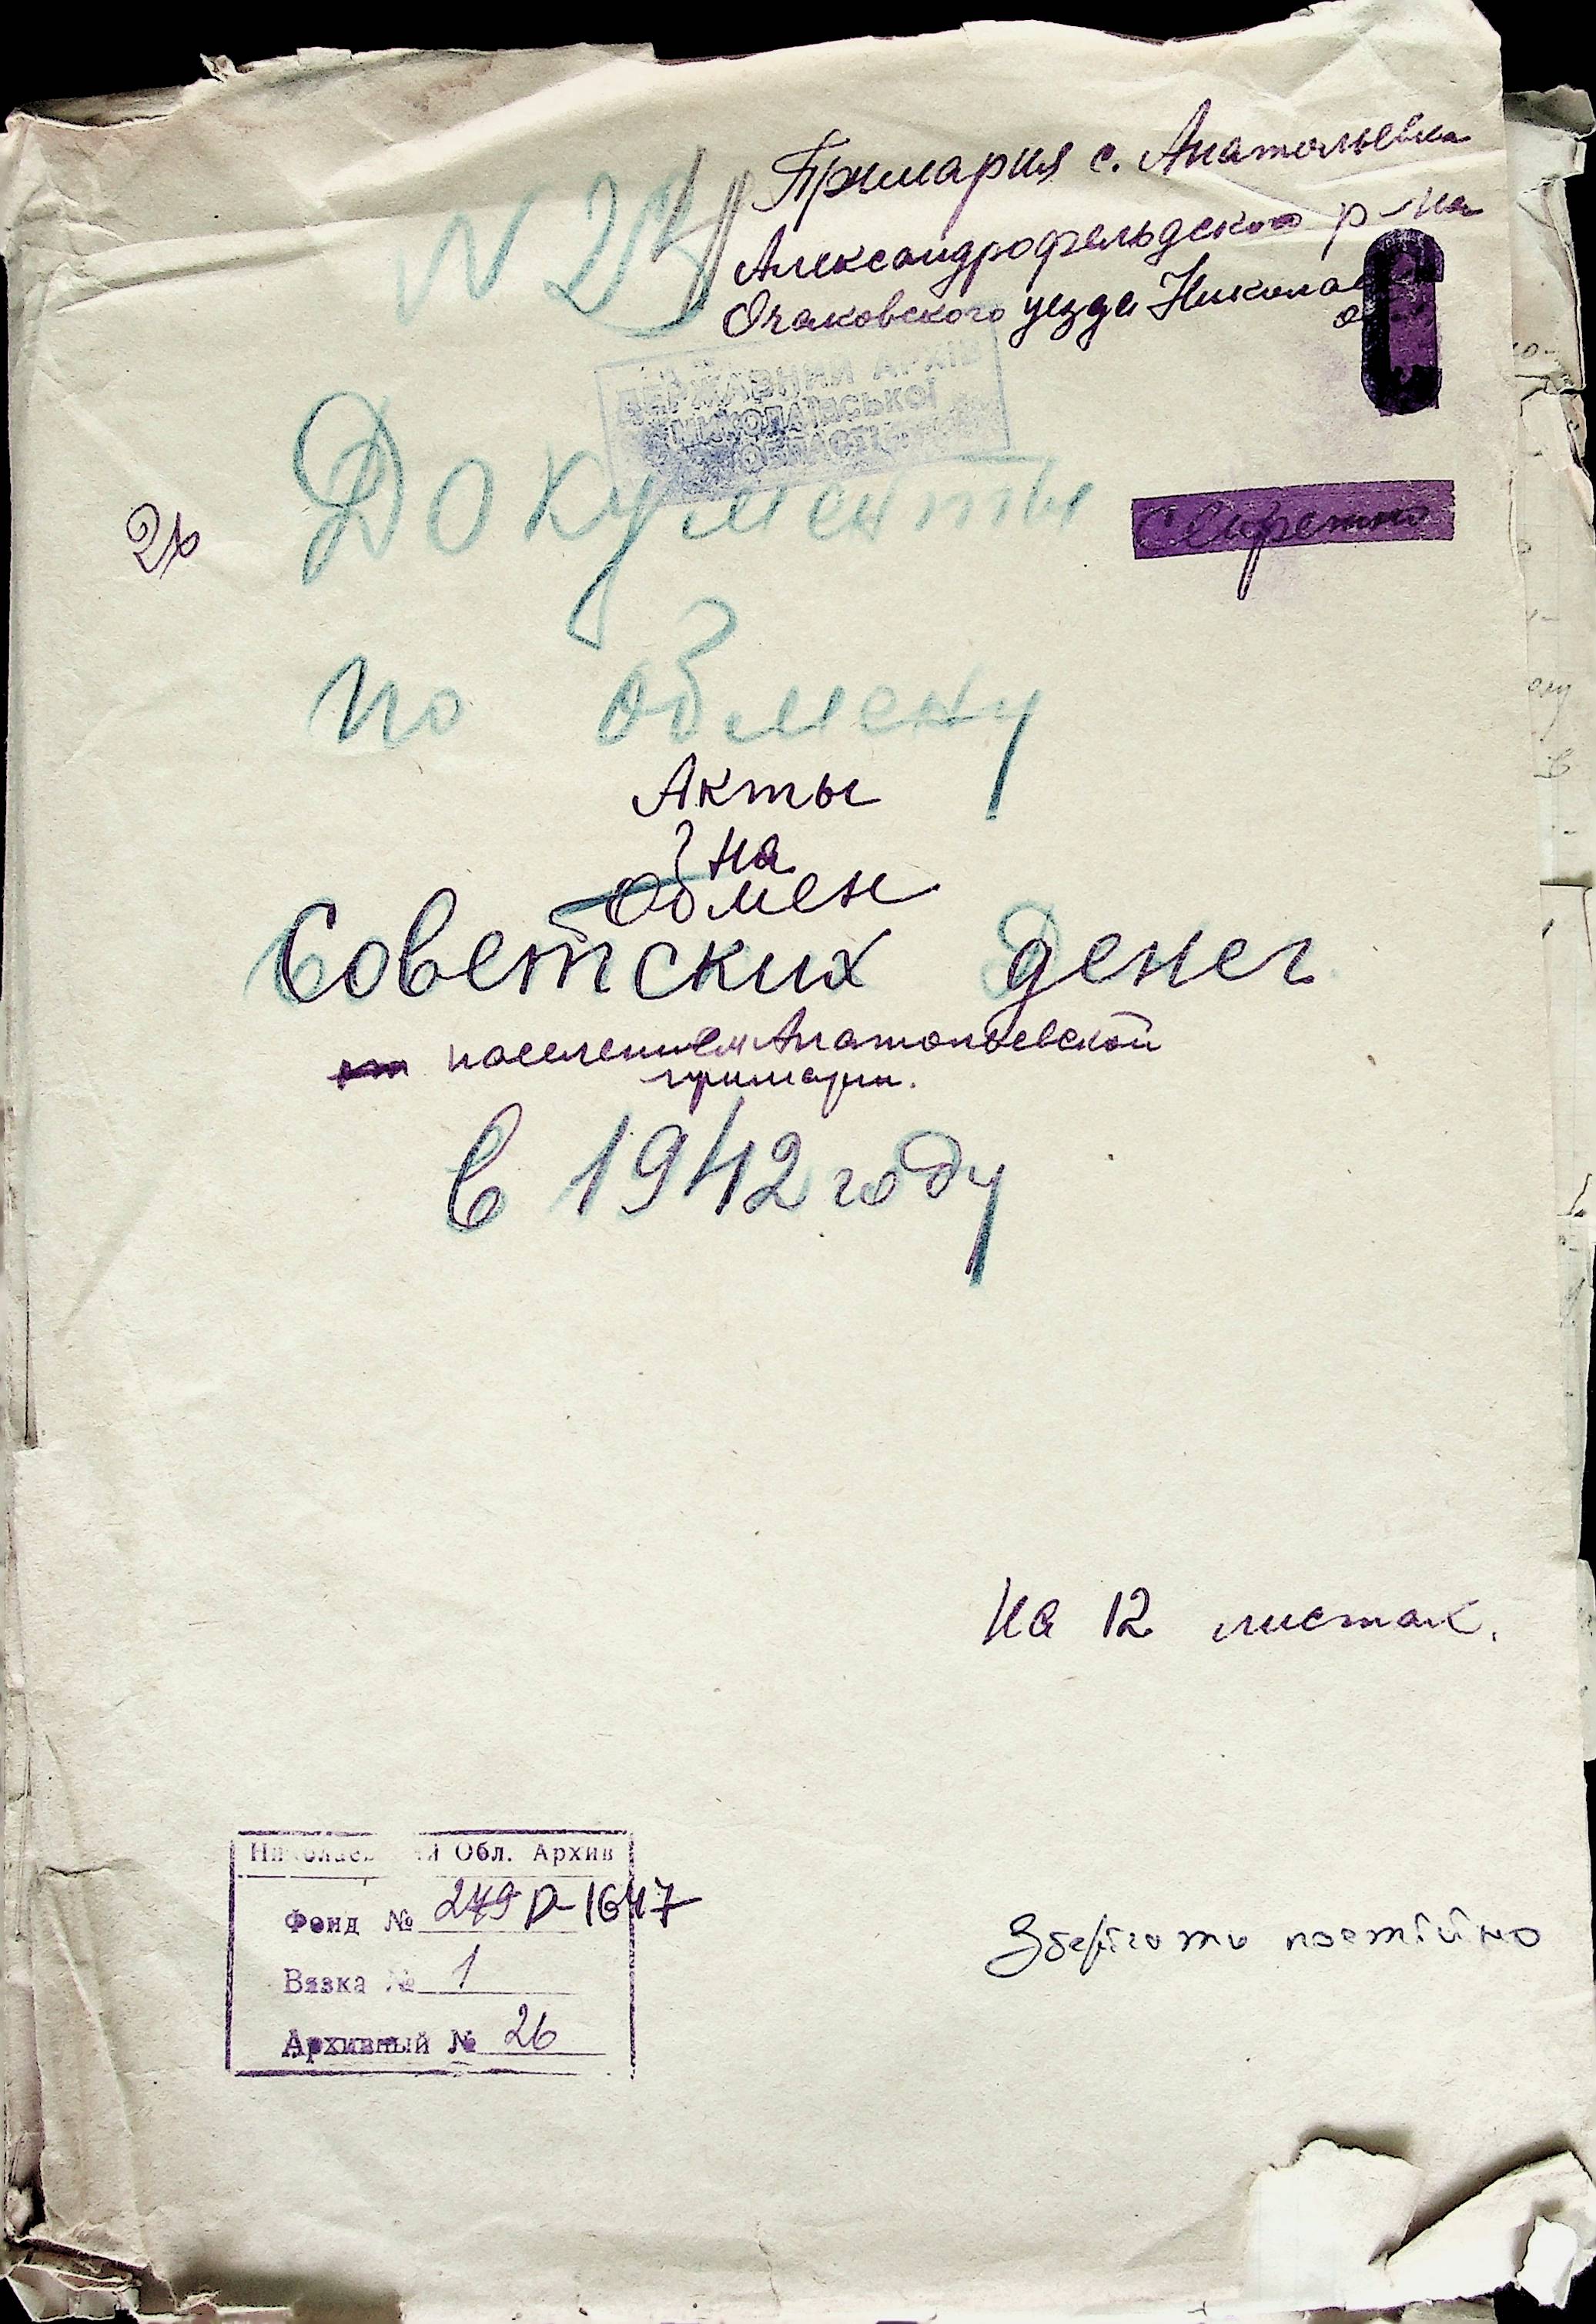 Примария с. Анатольевка
N 24
Александрофельдского р-на
Очаковского уезда Николаев
ДЕРЖАВНИЙ АРХІВ
МИКОЛАЇВСЬКОЇ
ОБЛАСТІ
Документы
Секретно
по обмену
Акты
на
Обмен
Советских денег
населением Анатольевской
примарии.
в 1942 году
На 12 листах.
Обл. Архив
Фонд № 279 Р-1647
Вязка № 1
Архивный № 26
Зберігати постійно